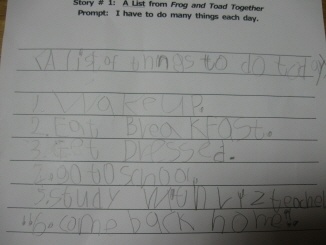 Story # 1: A List from Frog and Toad Together
Prompt: I have to do many things each day.
A list of things to do today
1. Wake up.
2. Eat Breakfast.
3. Get Dressed.
3. go to school.
5. study with teacher
6. come back home.